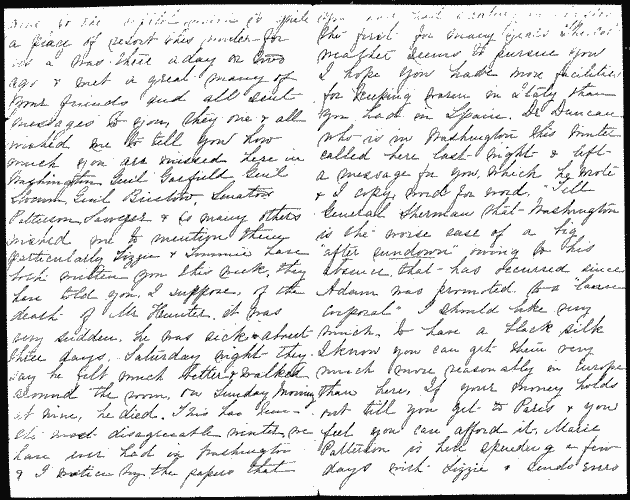 a place of resort this winter for
as I was there a day or two
ago & met a great many of
your friends and all sent
messages to you, they one & all
wished me to tell you how
much you are missed here in
Washington. Genl Garfield Genl
Genl Bristow, Senators
Patterson, Sawyer & so many others
wished me to mention them
particularly Lizzie & Tommie have
both written you this week, they
have told you, I suppose, of the
death of Mr Hunter. it was
very sudden. he was sick about
three days. Saturday night they
say he felt much better & walked
around the room, on Sunday morning
at nine, he died. This has been
the most disagreeable winter, we
have ever had in Washington
& I notice by the papers that
the first for many years the
weather seems to pursue you
I hope you have more facilities
for keeping warm in Italy than
you had in Spain. Dr Duncan
who is in Washington this winter
called here last night & left
a message for you, which he wrote
& I copy word for word. "Tell
General Sherman that Washington
is the worse case of a big
"after sundown" owing to his
absence, that has occurred since
Adam was promoted to a "lance
corporal" I should like very
much to have a black silk
I know you can get them very
much more reasonably in Europe
than here, If your money holds
out till you get to Paris & you
feel you can afford it. Marie
Patterson is here spending a few
days with Lizzie & sends